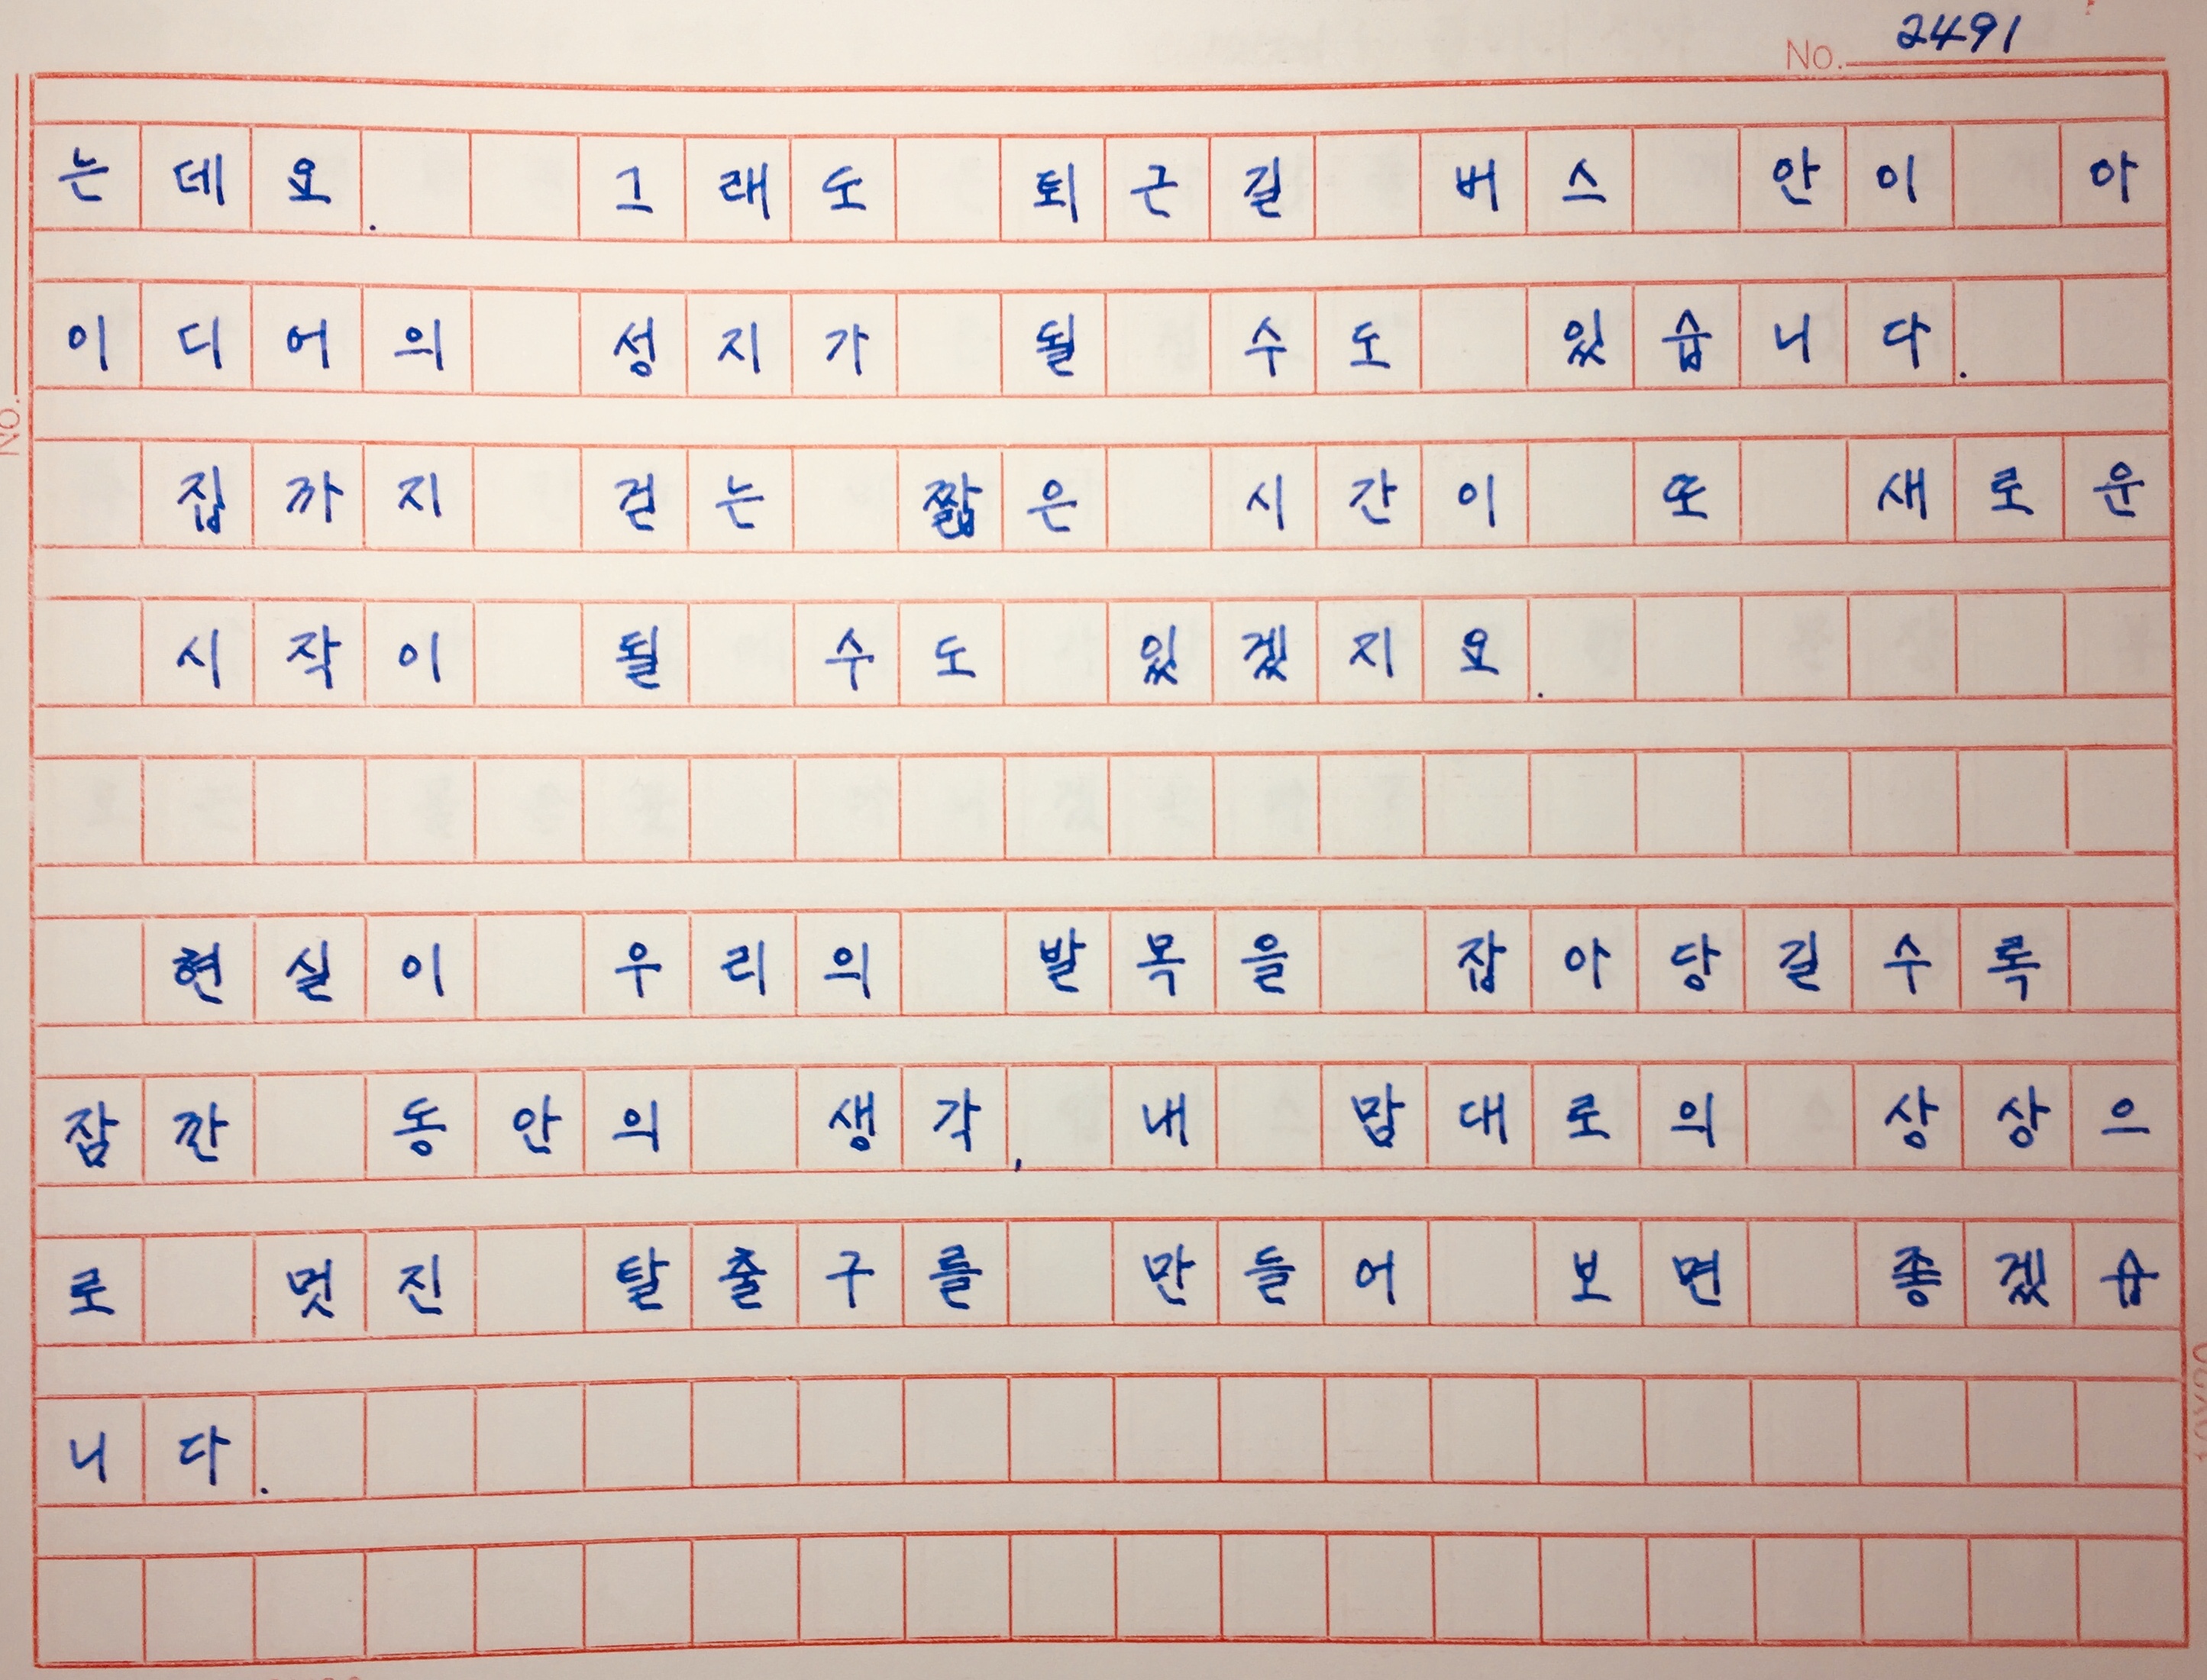 No. 2491
는데요. 그래도 퇴근길 버스 안이 아
이디어의 성지가 될 수도 있습니다.
집까지 걷는 짧은 시간이 또 새로운
시작이 될 수도 있겠지요.
현실이 우리의 발목을 잡아당길수록
잠깐 동안의 생각, 내 맘대로의 상상으
로 멋진 탈출구를 만들어 보면 좋겠습
니다.
No.